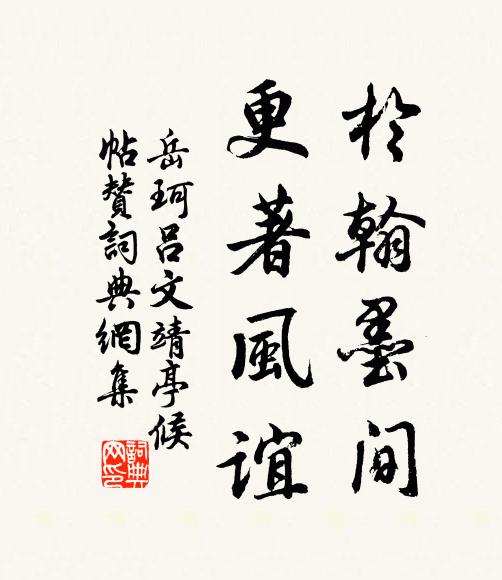 於翰墨间
更著風誼
岳珂呂文靖亭候
帖贊詞典網集
詞典网印